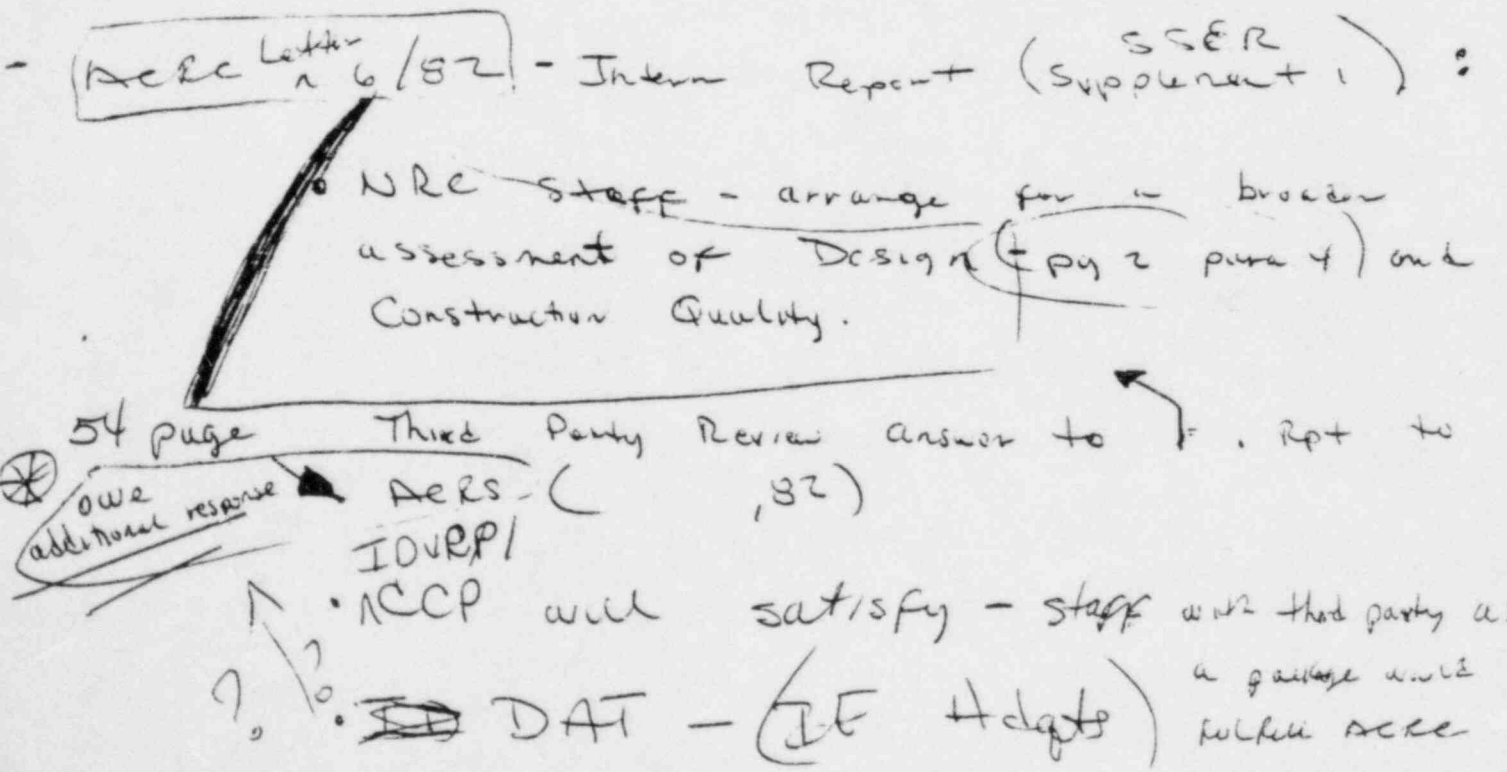 - ACRC Letter 6/82 - Interm Report (SSER Supplement 1) :
• NRC Staff - arrange for a broader
assessment of Design (- pg 2 para 4) and
Construction Quality.
54 page Third Party Review answer to . Rpt to
owe additional response
ACRS - ( ,82)
IDVRP/
• CCP will satisfy - staff with third party a
a package would
fulfill ACRC
? ? • DAT - (IE Hdqts)